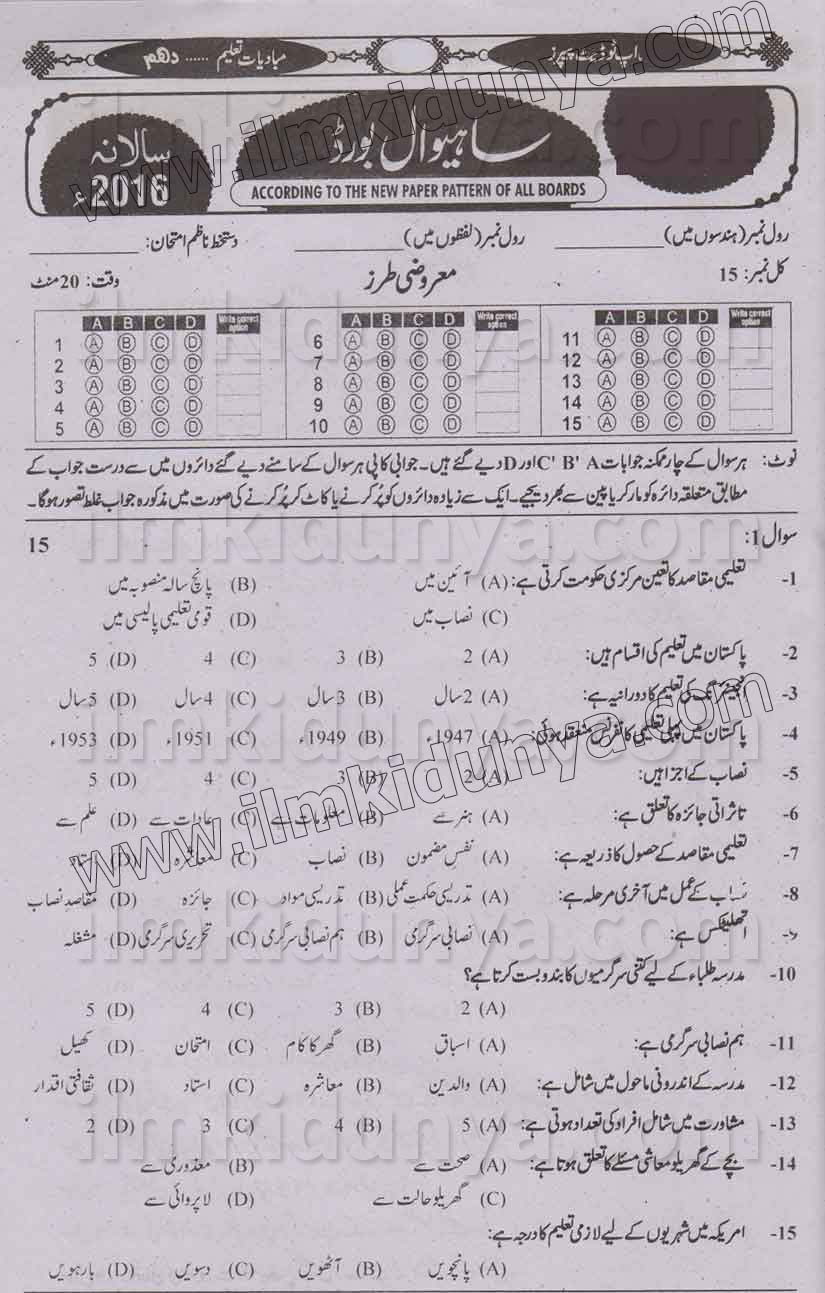 مبادیات تعلیم ...... دھم
اپ ٹو ڈیٹ پیپرز
سالانہ
2016ء
ساہیوال بورڈ
ACCORDING TO THE NEW PAPER PATTERN OF ALL BOARDS
رول نمبر (ہندسوں میں) __________ رول نمبر (لفظوں میں) __________ دستخط ناظم امتحان: __________
کل نمبر: 15 معروضی طرز وقت: 20 منٹ
A B C D Write correct option A B C D Write correct option A B C D Write correct option
1 A B C D 6 A B C D 11 A B C D
2 A B C D 7 A B C D 12 A B C D
3 A B C D 8 A B C D 13 A B C D
4 A B C D 9 A B C D 14 A B C D
5 A B C D 10 A B C D 15 A B C D
نوٹ: ہر سوال کے چار ممکنہ جوابات C' B' A اور D دیے گئے ہیں۔ جوابی کاپی پر ہر سوال کے سامنے دیے گئے دائروں میں سے درست جواب کے
مطابق متعلقہ دائرہ کو مارکر یا پین سے بھر دیجیے۔ ایک سے زیادہ دائروں کو پُر کرنے یا کاٹ کر پُر کرنے کی صورت میں مذکورہ جواب غلط تصور ہوگا۔
سوال 1: 15
1- تعلیمی مقاصد کا تعین مرکزی حکومت کرتی ہے: (A) آئین میں (B) پانچ سالہ منصوبہ میں
(C) نصاب میں (D) قومی تعلیمی پالیسی میں
2- پاکستان میں تعلیم کی اقسام ہیں: (A) 2 (B) 3 (C) 4 (D) 5
3- انجینئرنگ کی تعلیم کا دورانیہ ہے: (A) 2 سال (B) 3 سال (C) 4 سال (D) 5 سال
4- پاکستان میں پہلی تعلیمی کانفرنس منعقد ہوئی: (A) 1947ء (B) 1949ء (C) 1951ء (D) 1953ء
5- نصاب کے اجزا ہیں: (A) 2 (B) 3 (C) 4 (D) 5
6- تاثراتی جائزہ کا تعلق ہے: (A) ہنر سے (B) معلومات سے (C) عادات سے (D) علم سے
7- تعلیمی مقاصد کے حصول کا ذریعہ ہے: (A) نفس مضمون (B) نصاب (C) معاشرہ (D) استاد
8- نصاب کے عمل میں آخری مرحلہ ہے: (A) تدریسی حکمت عملی (B) تدریسی مواد (C) جائزہ (D) مقاصد نصاب
9- اتھلیٹکس ہے: (A) نصابی سرگرمی (B) ہم نصابی سرگرمی (C) تحریری سرگرمی (D) مشغلہ
10- مدرسہ طلباء کے لیے کتنی سرگرمیوں کا بندوبست کرتا ہے؟
(A) 2 (B) 3 (C) 4 (D) 5
11- ہم نصابی سرگرمی ہے: (A) اسباق (B) گھر کا کام (C) امتحان (D) کھیل
12- مدرسہ کے اندرونی ماحول میں شامل ہے: (A) والدین (B) معاشرہ (C) استاد (D) ثقافتی اقدار
13- مشاورت میں شامل افراد کی تعداد ہوتی ہے: (A) 5 (B) 4 (C) 3 (D) 2
14- بچے کے گھریلو معاشی مسئلے کا تعلق ہوتا ہے: (A) صحت سے (B) معذوری سے
(C) گھریلو حالت سے (D) لاپروائی سے
15- امریکہ میں شہریوں کے لیے لازمی تعلیم کا درجہ ہے:
(A) پانچویں (B) آٹھویں (C) دسویں (D) بارہویں
www.ilmkidunya.com
www.ilmkidunya.com
ilmkidunya.com
ilmkidunya.com
ilmkidunya.com
ilmkidunya.com
ilmkidunya.com
ilmkidunya.com